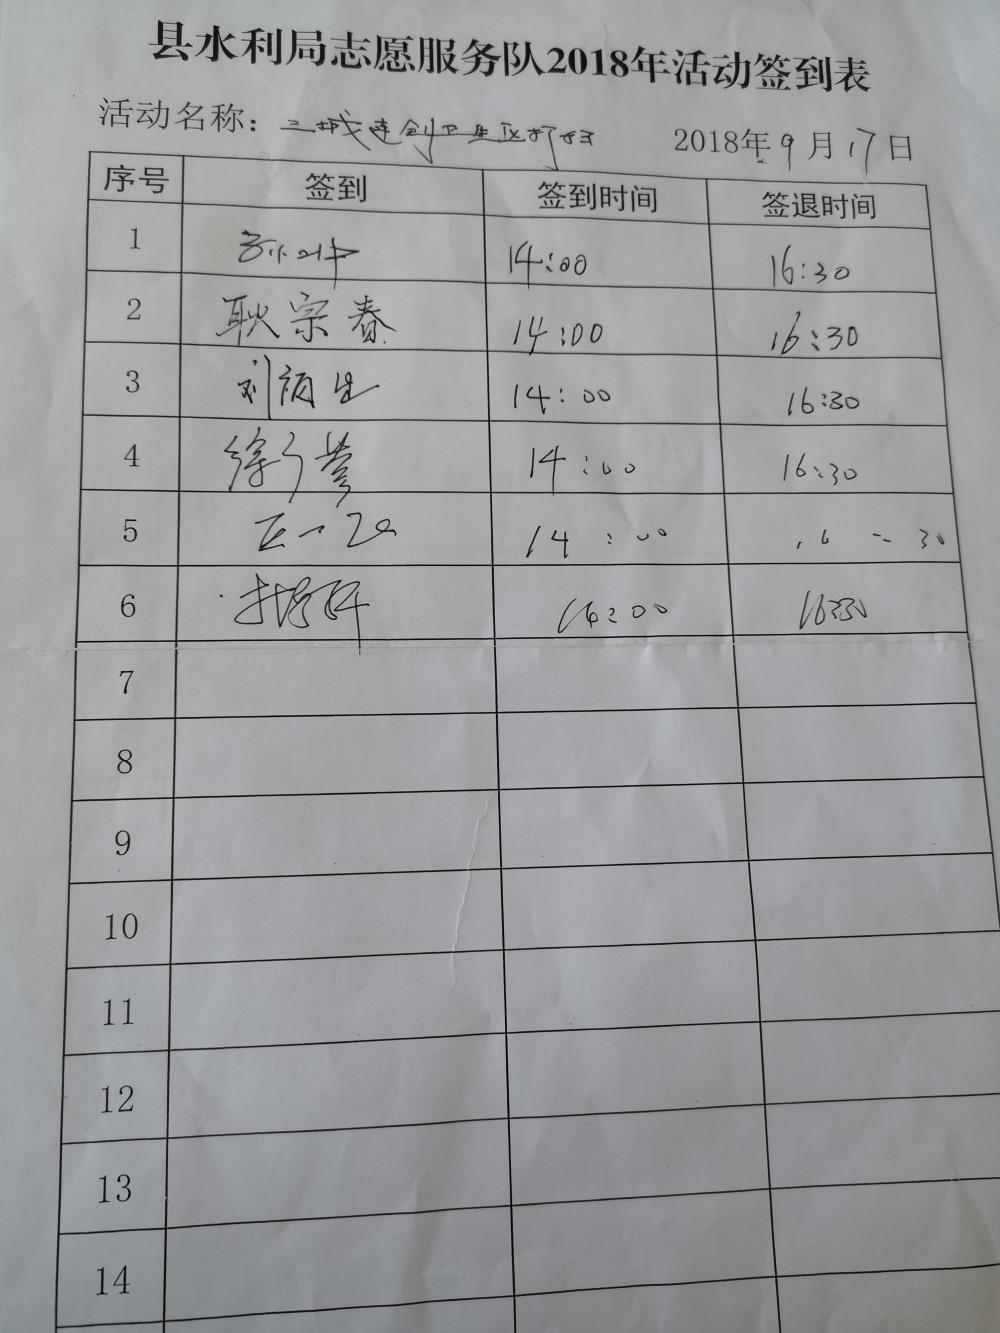 县水利局志愿服务队2018年活动签到表
活动名称：三城连创卫生区打扫 2018年9月17日
序号 签到 签到时间 签退时间
1 14:00 16:30
2 耿宗春 14:00 16:30
3 刘 14:00 16:30
4 徐 14:00 16:30
5 14:00 16:30
6 14:00 16:30
7
8
9
10
11
12
13
14